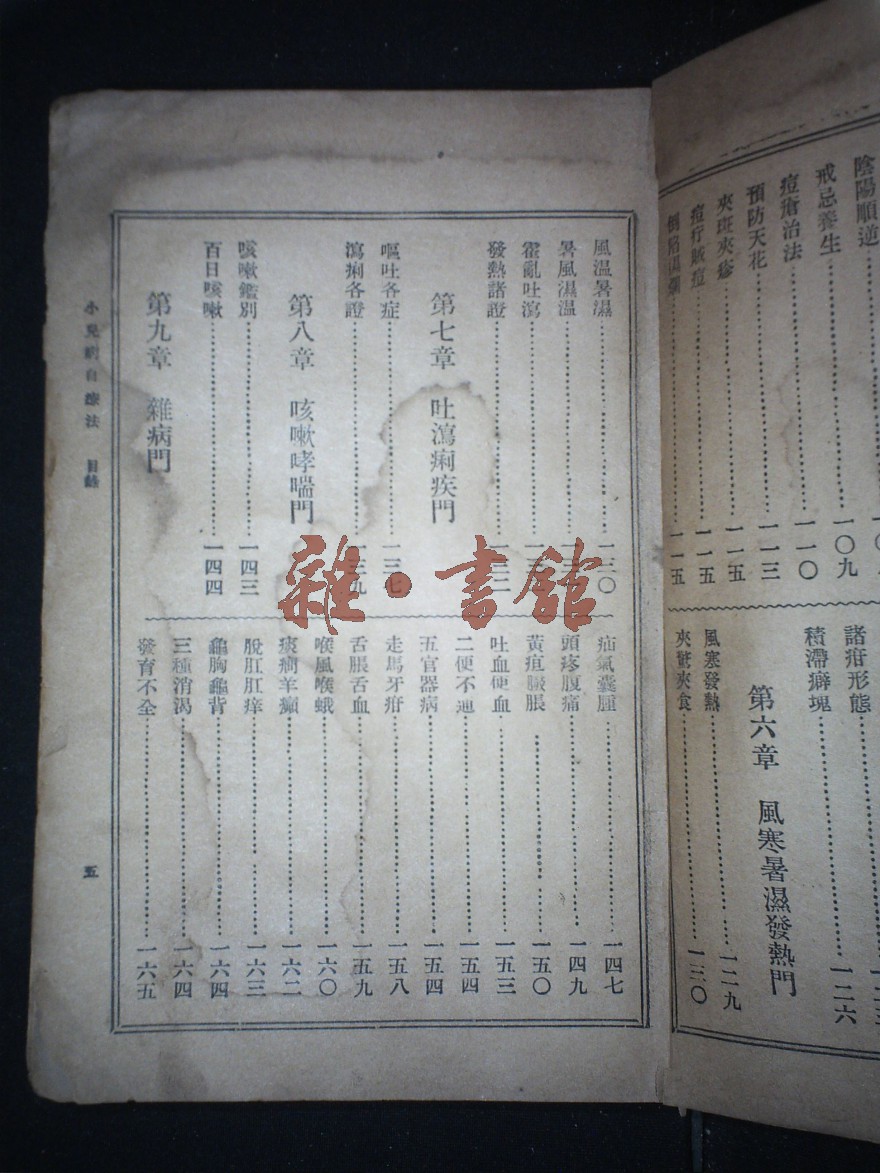 陰陽順逆
戒忌養生 一〇九
痘瘡治法 一一〇
預防天花 一一三
夾斑夾疹 一一五
痘疔賊痘 一一五
一一五
諸疳形態
積滯癖塊 一二六
第六章 風寒暑濕發熱門
風寒發熱 一二九
夾驚夾食 一三〇
風温暑濕 一三〇
暑風濕温
霍亂吐瀉
發熱諸證
第七章 吐瀉痢疾門
嘔吐各症
瀉痢各證
第八章 咳嗽哮喘門
咳嗽鑑別 一四三
百日咳嗽 一四四
第九章 雜病門
疝氣囊腫 一四七
頭疼腹痛 一四九
黃疸臌脹 一五〇
吐血便血 一五三
二便不通 一五四
五官器病 一五四
走馬牙疳 一五八
舌脹舌血 一五九
喉風喉蛾 一六〇
痰癎羊癲 一六二
脫肛肛痒 一六三
龜胸龜背 一六四
三種消渴 一六四
發育不全 一六五
小兒病自療法 目錄
五
雜·書館